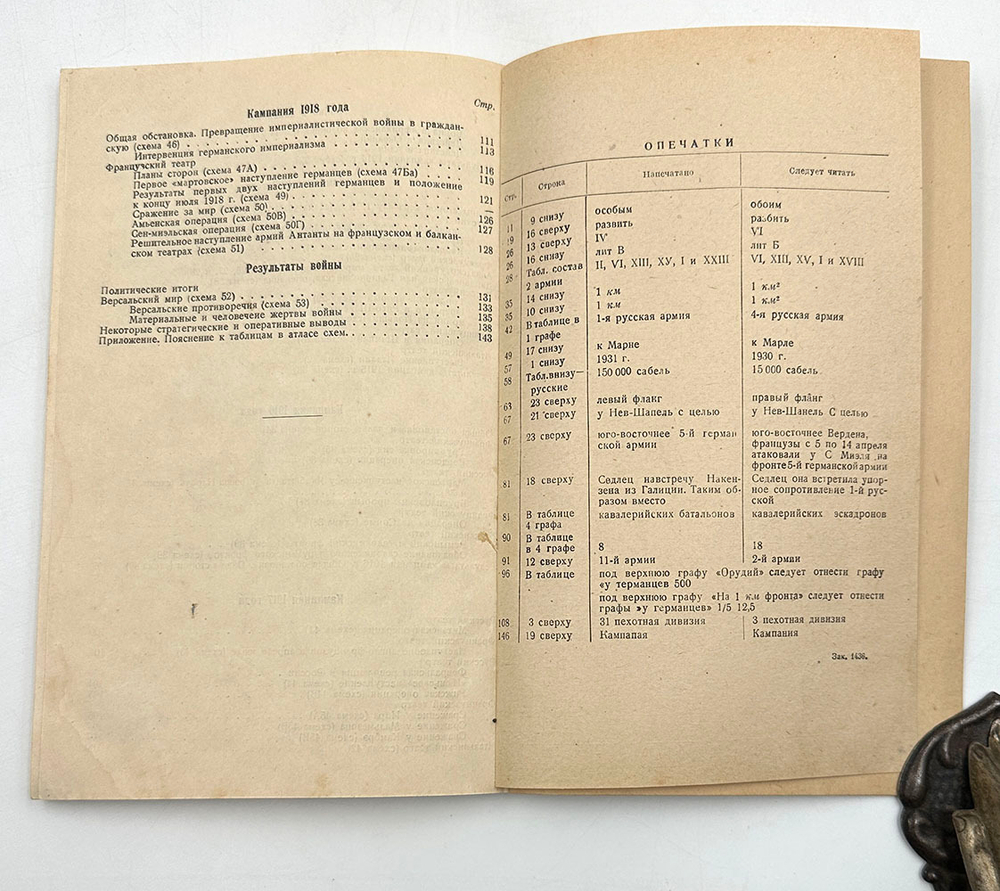 Кампания 1918 года
Стр.
Общая обстановка. Превращение империалистической войны в граждан-
скую (схема 46) . . . 111
Интервенция германского империализма . . . 113
Французский театр
Планы сторон (схема 47А) . . . 116
Первое «мартовское» наступление германцев (схема 47Ба) . . . 119
Результаты первых двух наступлений германцев и положение
к концу июля 1918 г. (схема 49) . . . 121
Сражение за мир (схема 50) . . . —
Амьенская операция (схема 50В) . . . 126
Сен-миэльская операция (схема 50Г) . . . 127
Решительное наступление армий Антанты на французском и балкан-
ском театрах (схема 51) . . . 128
Результаты войны
Политические итоги
Версальский мир (схема 52) . . . 131
Версальские противоречия (схема 53) . . . 133
Материальные и человечеие жертвы войны . . . 135
Некоторые стратегические и оперативные выводы . . . 138
Приложение. Пояснение к таблицам в атласе схем. . . . 143
ОПЕЧАТКИ
Стр. Строна Напечатано Следует читать
11 9 снизу особым обоим
19 16 сверху развить разбить
26 13 сверху IV VI
26 16 снизу лит В лит Б
28 Табл. состав II, VI, XIII, XУ, I и XXIII VI, XIII, XV, I и XVIII
2 армии
35 14 снизу 1 км 1 км²
35 10 снизу 1 км 1 км²
42 В таблице в 1-я русская армия 4-я русская армия
1 графе
49 17 снизу к Марне к Марле
57 1 снизу 1931 г. 1930 г.
58 Табл.внизу— 150 000 сабель 15 000 сабель
русские
63 23 сверху левый флакг правый фланг
67 21 сверху у Нев-Шапель с целью у Нев-Шапель С целью
67 23 сверху юго-восточнее 5-й герман юго-восточнее Вердена,
ской армии французы с 5 по 14 апреля
атаковали у С Миэля на
фронте 5-й германской армии
81 18 сверху Седлец навстречу Накен- Седлец она встретила упор-
зена из Галиции. Таким об- ное сопротивление 1-й рус-
разом вместо ской
81 В таблице кавалерийских батальонов кавалерийских эскадронов
4 графа
90 В таблице
в 4 графе 8 18
91 12 сверху 11-й армии 2-й армии
96 В таблице под верхнюю графу «Орудий» следует отнести графу
«у терманцев 500
под верхнюю графу «На 1 км фронта» следует отнести
графы »у германцев» 1/5 12,5
108 3 сверху 31 пехотная дивизия 3 пехотная дивизия
146 19 сверху Кампапая Кампания
Зак. 1436.